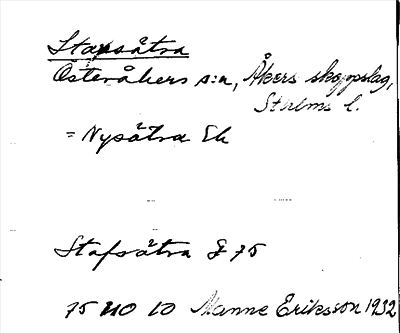 Stafsätra
Österåkers s:n, Åkers skeppslag,
Sthlms l.
= Nysätra Ek
Stafsätra J 75
75 MO 10 Manne Eriksson 1932